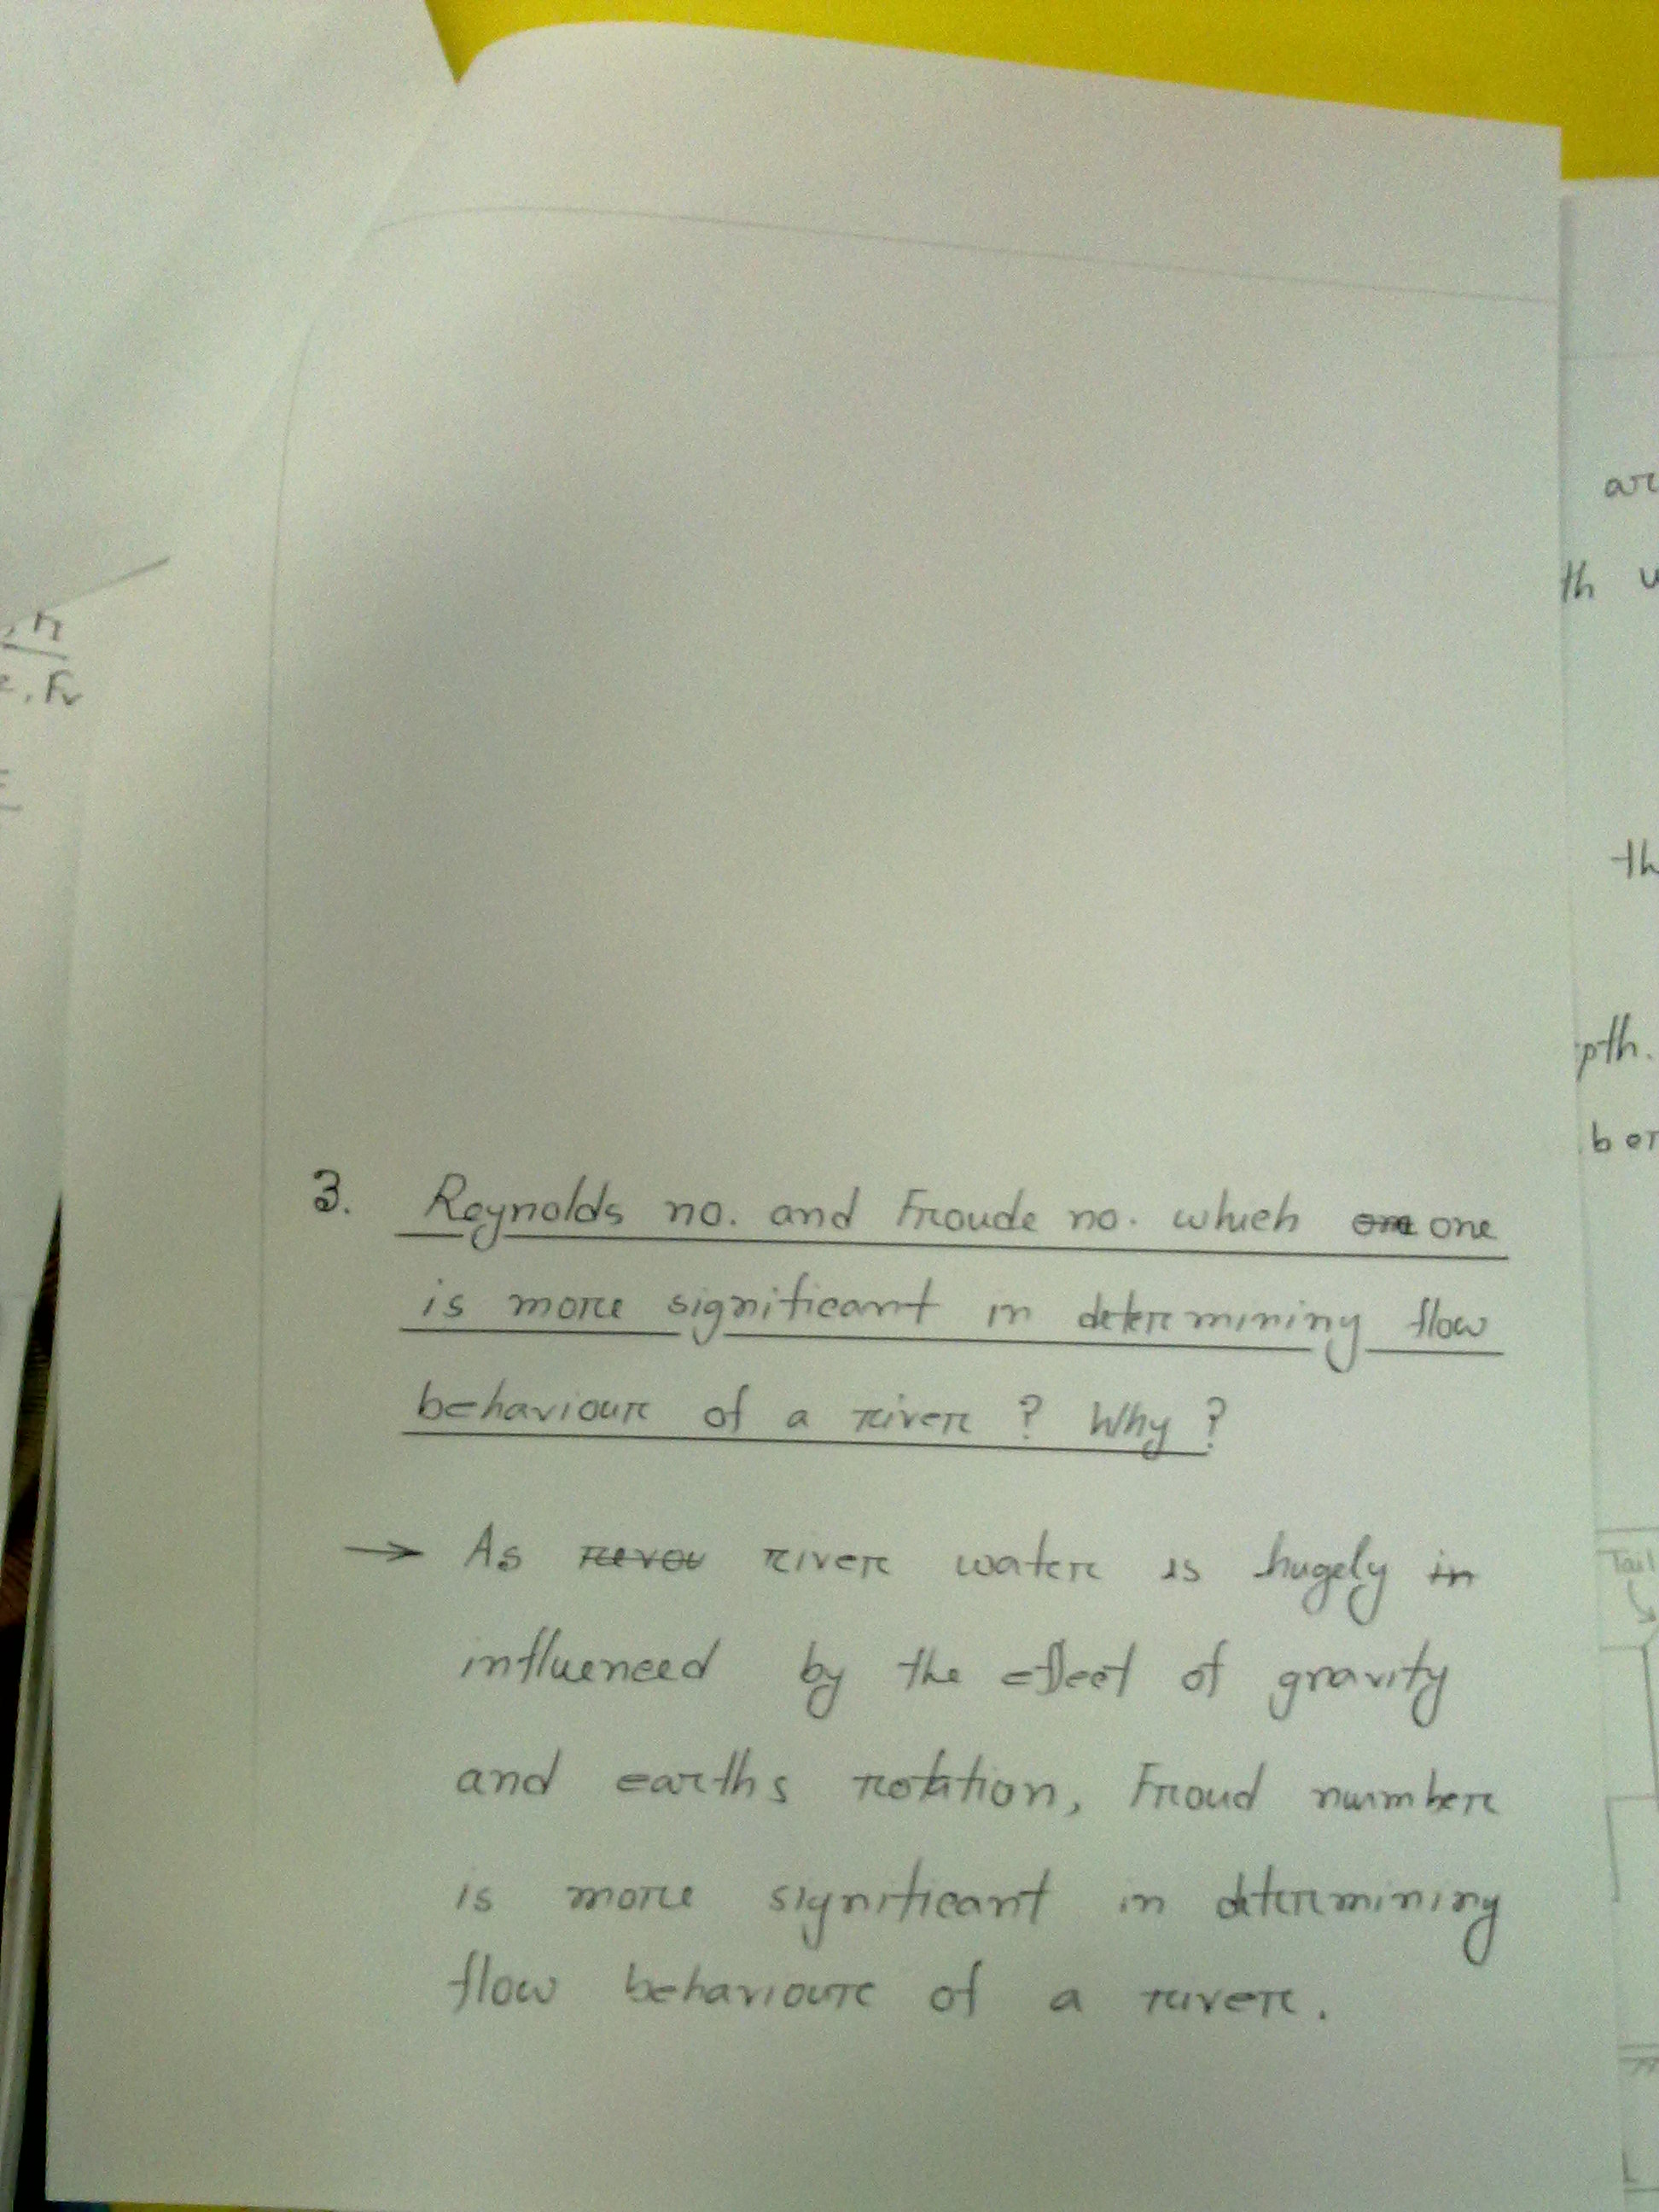 3. Reynolds no. and Froude no. which one
is more significant in determining flow
behaviour of a river ? Why ?
→ As river water is hugely in
influenced by the effect of gravity
and earths rotation, Froud number
is more significant in determining
flow behaviour of a river.
, Fr
th
th
pth.
ber
Tail